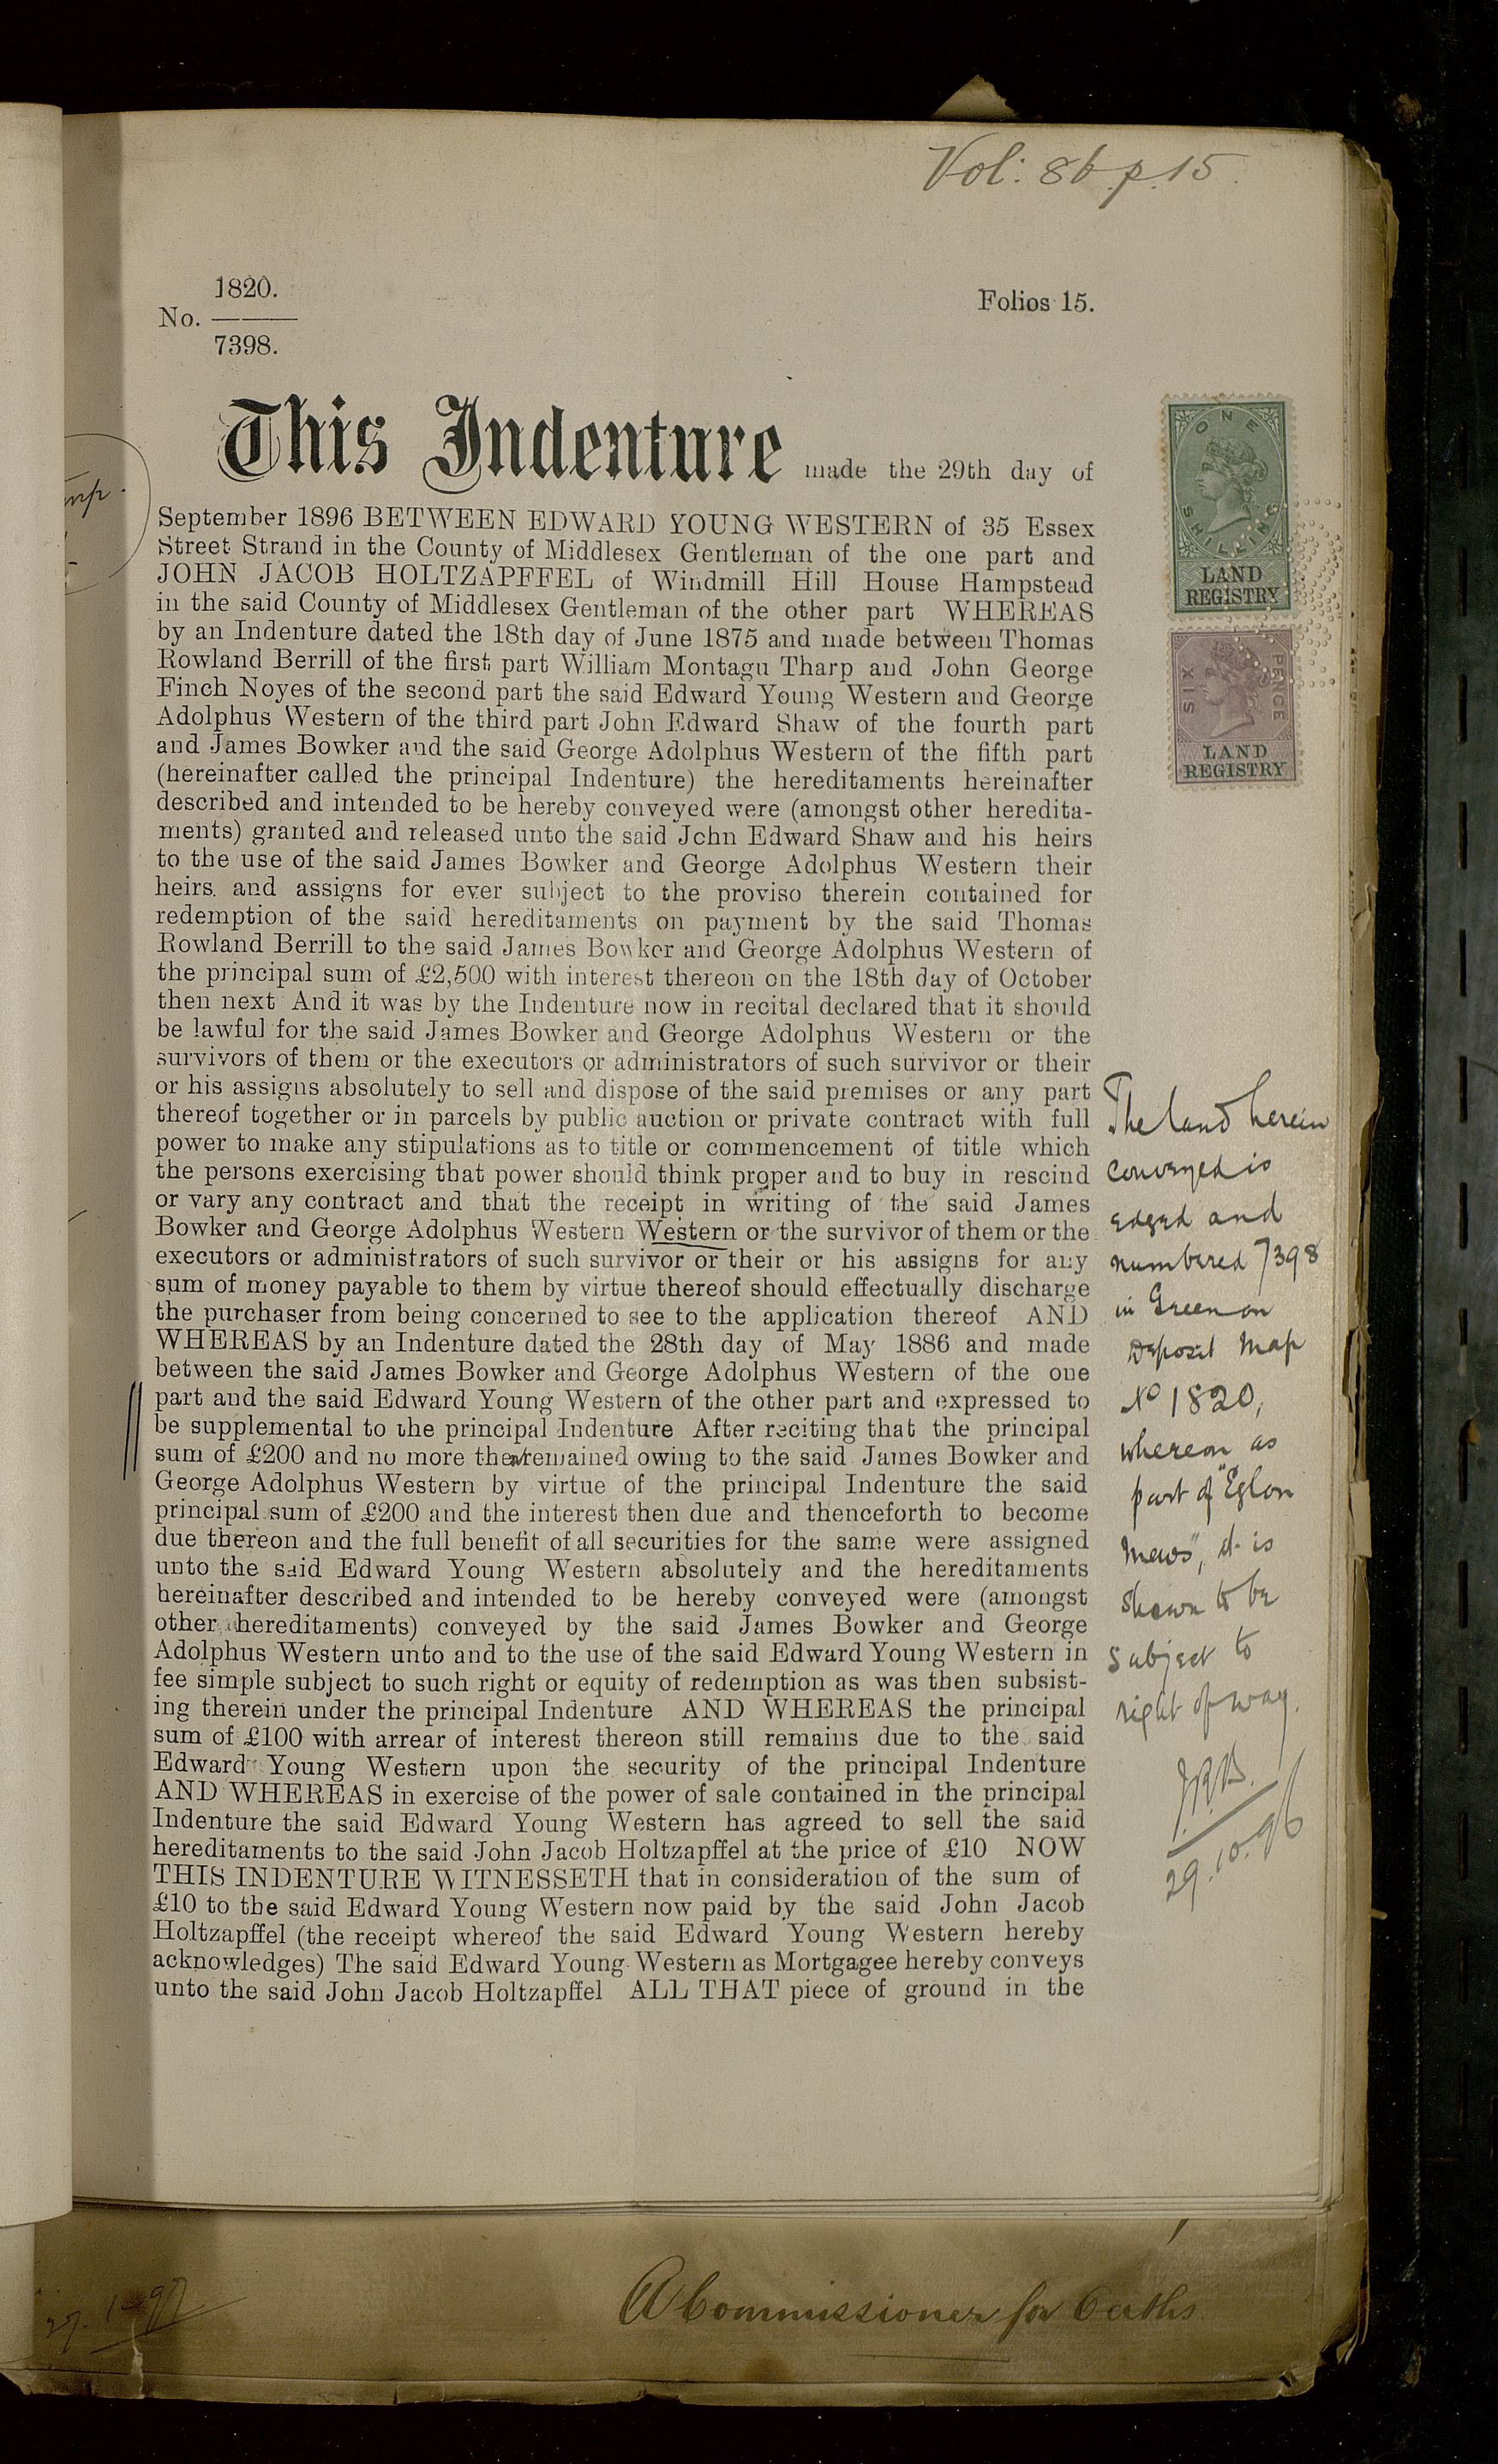 Vol: 86 p. 15.
1820.
No. ———
7398.
Folios 15.
This Indenture made the 29th day of
September 1896 BETWEEN EDWARD YOUNG WESTERN of 35 Essex
Street Strand in the County of Middlesex Gentleman of the one part and
JOHN JACOB HOLTZAPFFEL of Windmill Hill House Hampstead
in the said County of Middlesex Gentleman of the other part WHEREAS
by an Indenture dated the 18th day of June 1875 and made between Thomas
Rowland Berrill of the first part William Montagu Tharp and John George
Finch Noyes of the second part the said Edward Young Western and George
Adolphus Western of the third part John Edward Shaw of the fourth part
and James Bowker and the said George Adolphus Western of the fifth part
(hereinafter called the principal Indenture) the hereditaments hereinafter
described and intended to be hereby conveyed were (amongst other heredita-
ments) granted and released unto the said John Edward Shaw and his heirs
to the use of the said James Bowker and George Adolphus Western their
heirs. and assigns for ever subject to the proviso therein contained for
redemption of the said hereditaments on payment by the said Thomas
Rowland Berrill to the said James Bowker and George Adolphus Western of
the principal sum of £2,500 with interest thereon on the 18th day of October
then next And it was by the Indenture now in recital declared that it should
be lawful for the said James Bowker and George Adolphus Western or the
survivors of them or the executors or administrators of such survivor or their
or his assigns absolutely to sell and dispose of the said premises or any part
thereof together or in parcels by public auction or private contract with full
power to make any stipulations as to title or commencement of title which
the persons exercising that power should think proper and to buy in rescind
or vary any contract and that the receipt in writing of the said James
Bowker and George Adolphus Western Western or the survivor of them or the
executors or administrators of such survivor or their or his assigns for any
sum of money payable to them by virtue thereof should effectually discharge
the purchaser from being concerned to see to the application thereof AND
WHEREAS by an Indenture dated the 28th day of May 1886 and made
between the said James Bowker and George Adolphus Western of the one
part and the said Edward Young Western of the other part and expressed to
be supplemental to the principal Indenture After reciting that the principal
sum of £200 and no more then remained owing to the said James Bowker and
George Adolphus Western by virtue of the principal Indenture the said
principal sum of £200 and the interest then due and thenceforth to become
due thereon and the full benefit of all securities for the same were assigned
unto the said Edward Young Western absolutely and the hereditaments
hereinafter described and intended to be hereby conveyed were (amongst
other hereditaments) conveyed by the said James Bowker and George
Adolphus Western unto and to the use of the said Edward Young Western in
fee simple subject to such right or equity of redemption as was then subsist-
ing therein under the principal Indenture AND WHEREAS the principal
sum of £100 with arrear of interest thereon still remains due to the said
Edward Young Western upon the security of the principal Indenture
AND WHEREAS in exercise of the power of sale contained in the principal
Indenture the said Edward Young Western has agreed to sell the said
hereditaments to the said John Jacob Holtzapffel at the price of £10 NOW
THIS INDENTURE WITNESSETH that in consideration of the sum of
£10 to the said Edward Young Western now paid by the said John Jacob
Holtzapffel (the receipt whereof the said Edward Young Western hereby
acknowledges) The said Edward Young Western as Mortgagee hereby conveys
unto the said John Jacob Holtzapffel ALL THAT piece of ground in the
ONE
SHILLING
LAND
REGISTRY
SIX
PENCE
LAND
REGISTRY
The land herein
conveyed is
edged and
numbered 7398
in Green on
Deposit Map
No 1820,
whereon as
part of "Eglon
Mews", it is
shewn to be
subject to
right of way.
29.10.96
A Commissioner for Oaths.
27. 1-97